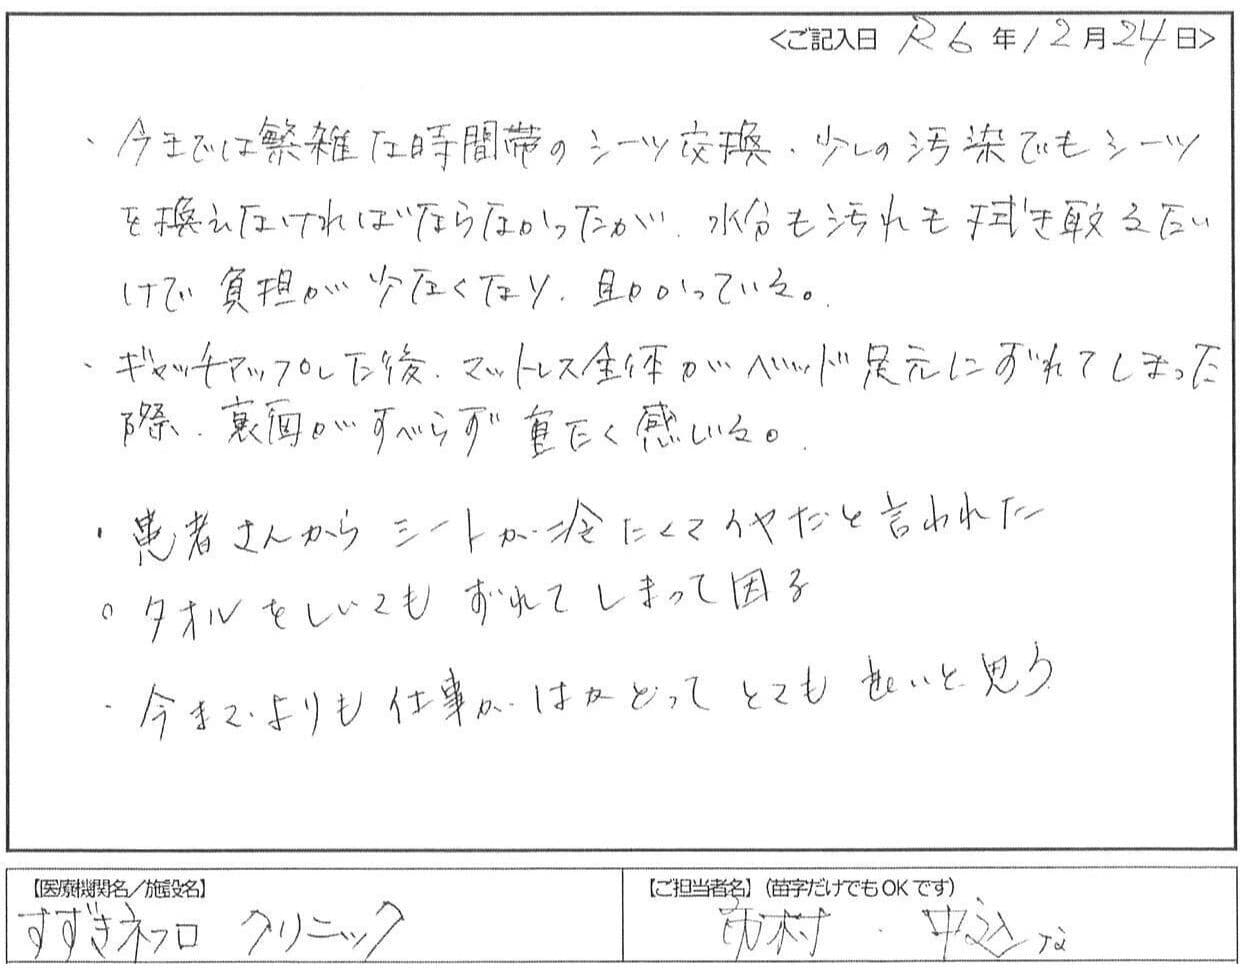 <ご記入日 R6年12月24日>
・今までは繁雑な時間帯のシーツ交換、少しの汚染でもシーツ
を換えなければならなかったが、水分も汚れも拭き取るだい
けで負担が少なくなり、助かっている。
・ギャッチアップした後、マットレス全体がベッド足元にずれてしまった
際、裏面がすべらず重たく感じる。
・患者さんからシートが冷たくてイヤだと言われた
○タオルをしいてもずれてしまって困る
・今までよりも仕事がはかどってとても良いと思う
【医療機関名/施設名】
すずきネフロクリニック
【ご担当者名】(苗字だけでもOKです)
市村・中込